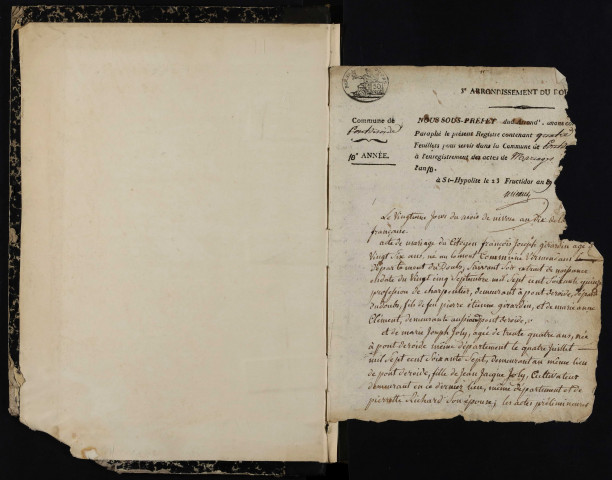 3e ARRONDISSEMENT DU DOU
Commune de
Pontderoide
10e ANNÉE.
NOUS SOUS-PREFET dud. Arrond. avons co
Paraphé le présent Registre contenant quatre
Feuillets pour servir dans la Commune de Pont
à l'enregistrement des actes de Mariage
l'an 10.
à St-Hypolite le 23 Fructidor an 9
Le vingtième jour du mois de nivose an dix de la
française.
acte de mariage du Citoyen françois Joseph girardin agé d
Vingt Six ans, né au Commune
département du Doubs, Suivant Son extrait de naissance
en date du Vingt cinq Septembre mil Sept cent Soixante quinze
profession de charpentier, demeurant à pont de roide, départ
du doubs, fils de feu pierre étienne girardin, et de marie anne
Clément, demeurante au pont de roide,
et de marie Joseph Joly, agée de trente quatre ans, née
à pont de roide même département le quatre Juillet
mil Sept cent Soixante Sept, demeurant au même lieu
de pont de roide, fille de Jean Jacque Joly, Cultivateur
demeurant en ce dernier lieu, même département et de
pierrette Richard Son épouse; les actes préliminaires